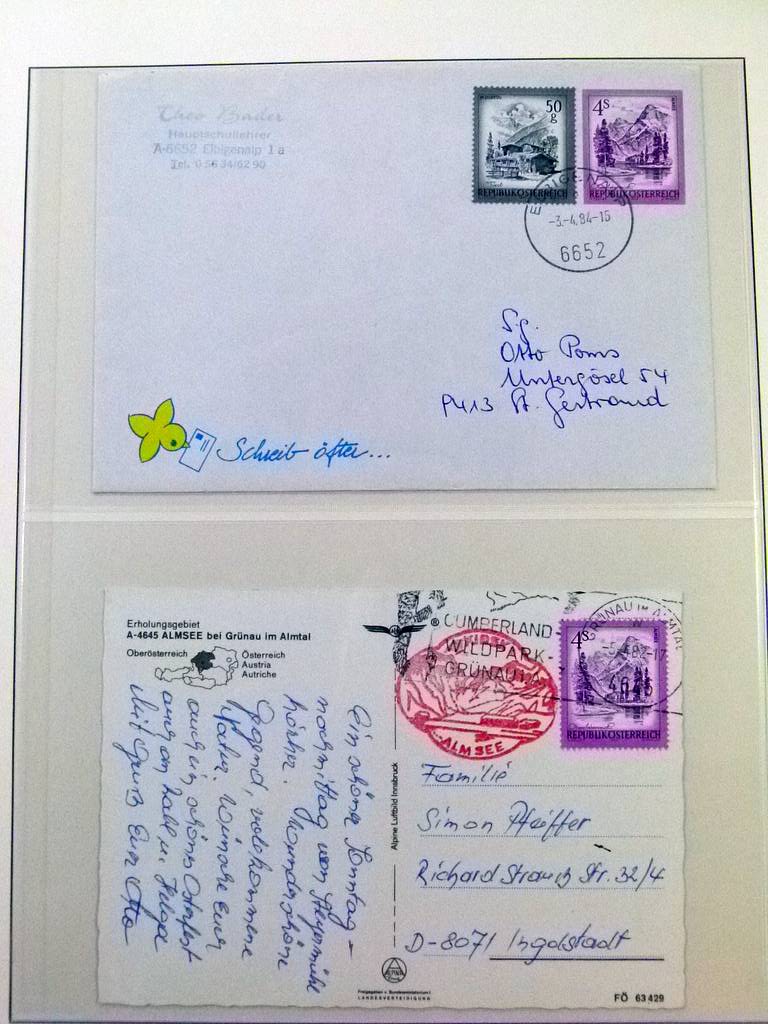 Theo Bader
Hauptschullehrer
A-6652 Elbigenalp 1 a
Tel. 0 56 34/62 90
50
g
REPUBLIK ÖSTERREICH
4 S
REPUBLIK ÖSTERREICH
-3.-4.84-15
6652
Sg.
Otto Poms
Untergösel 54
9413 St. Gertraud
Schreib öfter...
Erholungsgebiet
A-4645 ALMSEE bei Grünau im Almtal
Oberösterreich
Österreich
Austria
Autriche
Ein schöner Sonntag-
nachmittag von Steyrermühl
hierher. Wunderschöne
Gegend, vollkommene
Natur. Wünsche Euch
auch ein schönes Osterfest
auch an Zahl u. Helga
Mit Gruß Euer Otto
Alpine Luftbild Innsbruck
CUMBERLAND-
WILDPARK-
GRÜNAU I.A.
ALMSEE
GRÜNAU IM ALMTAL
-5.-4.82-17
4645
4 S
REPUBLIK ÖSTERREICH
Familie
Simon Pfeiffer
Richard Strauß Str. 32/4
D-8071 Ingolstadt
ALPINE
Freigegeben v. Bundesministerium f.
LANDESVERTEIDIGUNG
FÖ 63 429